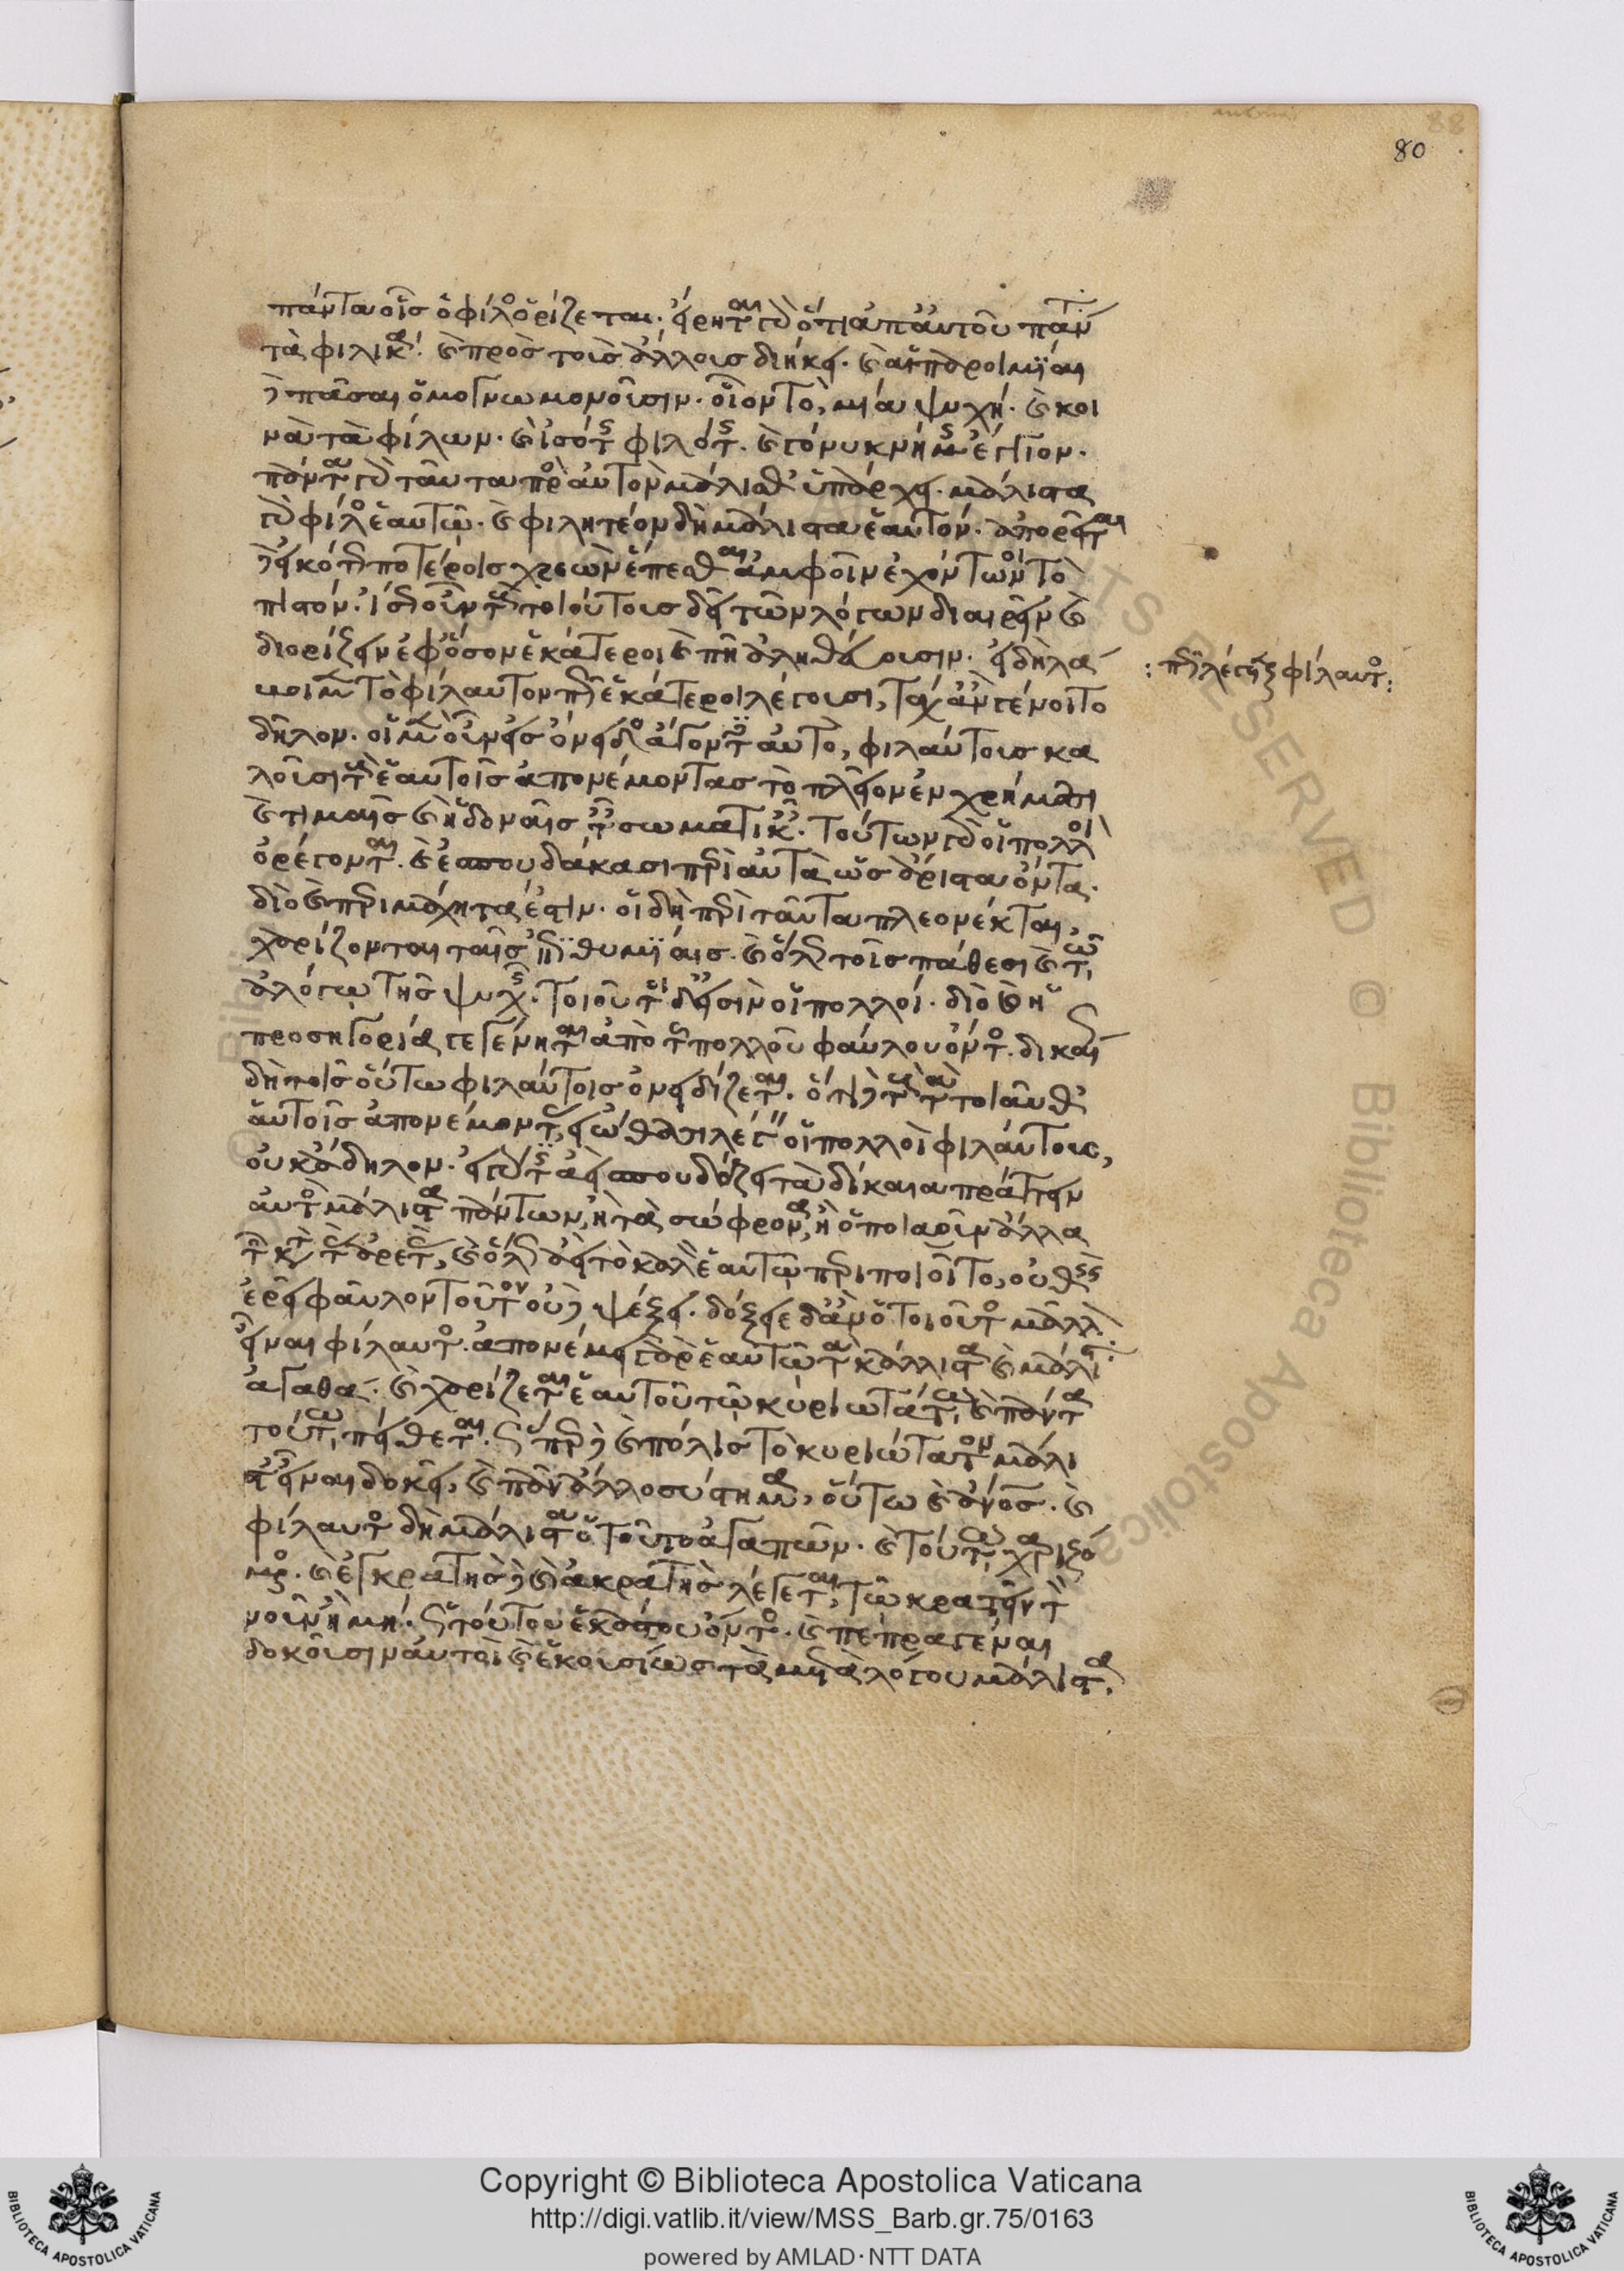 80
πάντα οἷς ὁ φίλος ὁρίζεται· εἴρηται γὰρ ὅτι ἀπ' αὐτοῦ πάν
τὰ φιλικὰ· καὶ πρὸς τοὺς ἄλλους διήκει. καὶ αἱ παροιμίαι
δὲ πᾶσαι ὁμογνωμονοῦσιν. οἷον τὸ, μία ψυχή. καὶ κοι
νὰ τὰ φίλων. καὶ ἰσότης φιλότης. καὶ γόνυ κνήμης ἔγγιον.
πάντα γὰρ ταῦτα πρὸς αὐτὸν μάλισθ' ὑπάρχει. μάλιστα
γὰρ φίλος ἑαυτῷ. καὶ φιλητέον δὴ μάλιστα ἑαυτόν. ἀπορεῖται
δ' εἰκότως ποτέροις χρεὼν ἕπεσθαι ἀμφοῖν ἐχόντων τὸ
πιστόν. ἴσως οὖν τοὺς τοιούτους δεῖ τῶν λόγων διαιρεῖν καὶ
διορίζειν ἐφ' ὅσον ἑκάτεροι καὶ πῆ ἀληθεύουσιν. εἰ δὴ λά
βοιμεν τὸ φίλαυτον πῶς ἑκάτεροι λέγουσι, τάχ' ἂν γένοιτο
: πῶς λέγεται φίλαυτος :
δῆλον. οἱ μὲν οὖν εἰς ὄνειδος ἄγοντες αὐτὸ, φιλαύτους κα
λοῦσι τοὺς ἑαυτοῖς ἀπονέμοντας τὸ πλεῖον ἐν χρήμασι
καὶ τιμαῖς καὶ ἡδοναῖς ταῖς σωματικαῖς. τούτων γὰρ οἱ πολλοὶ
ὀρέγονται. καὶ ἐσπουδάκασι περὶ αὐτὰ ὡς ἄριστα ὄντα.
διὸ καὶ περιμάχητά ἐστιν. οἱ δὴ περὶ ταῦτα πλεονέκται,
χαρίζονται ταῖς ἐπιθυμίαις. καὶ ὅλως τοῖς πάθεσι καὶ τῷ
ἀλόγῳ τῆς ψυχῆς. τοιοῦτοι δ' εἰσὶν οἱ πολλοί. διὸ καὶ ἡ
προσηγορία γεγένηται ἀπὸ τοῦ πολλοῦ φαύλου ὄντος. δικαίως
δὴ τοῖς οὕτω φιλαύτοις ὀνειδίζεται. ὅτι δὲ τοὺς τὰ τοιαῦθ'
αὑτοῖς ἀπονέμοντας, εἰώθασι λέγειν οἱ πολλοὶ φιλαύτους,
οὐκ ἄδηλον. εἰ γάρ τις ἀεὶ σπουδάζει τὰ δίκαια πράττειν
αὐτὸς μάλιστα πάντων, ἢ τὰ σώφρονα, ἢ ὁποιαοῦν ἄλλα
τῶν κατὰ τὰς ἀρετὰς, καὶ ὅλως ἀεὶ τὸ καλὸν ἑαυτῷ περιποιοῖτο, οὐθεὶς
ἐρεῖ φαῦλον τοῦτον οὐδὲ ψέξει. δόξειε δ' ἂν ὁ τοιοῦτος μᾶλλον
εἶναι φίλαυτος. ἀπονέμει γὰρ ἑαυτῷ τὰ κάλλιστα καὶ μάλιστ'
ἀγαθά. καὶ χαρίζεται ἑαυτοῦ τῷ κυριωτάτῳ, καὶ πάντα
τούτῳ πείθεται. ὥσπερ δὲ καὶ πόλις τὸ κυριώτατον μάλι
στ' εἶναι δοκεῖ, καὶ πᾶν ἄλλο σύστημα, οὕτω καὶ ἄνθρωπος. καὶ
φίλαυτος δὴ μάλιστα ὁ τοῦτο ἀγαπῶν. καὶ τούτῳ χαριζό
μενος. καὶ ἐγκρατὴς δὲ καὶ ἀκρατὴς λέγεται, τῷ κρατεῖν τὸν
νοῦν ἢ μή. ὡς τούτου ἑκάστου ὄντος. καὶ πεπραγέναι
δοκοῦσιν αὐτοὶ καὶ ἑκουσίως τὰ μετὰ λόγου μάλιστα.
Copyright © Biblioteca Apostolica Vaticana
http://digi.vatlib.it/view/MSS_Barb.gr.75/0163
powered by AMLAD·NTT DATA